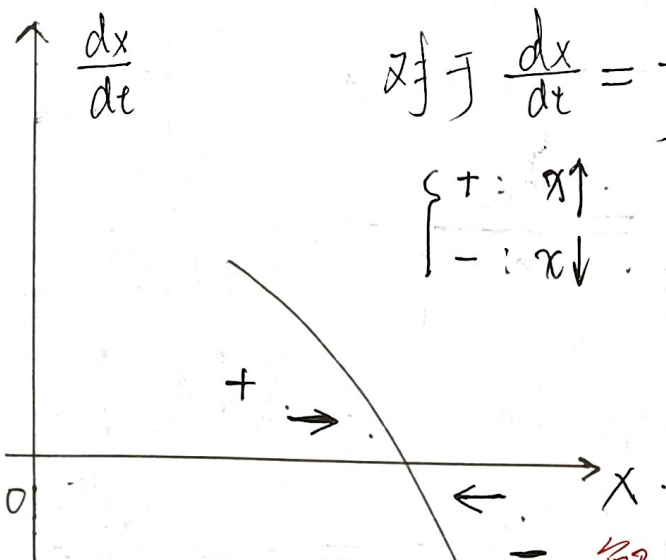 dx
dt
对于 dx/dt =
{ + : x↑.
- : x↓.
+ →
0
← X.
-